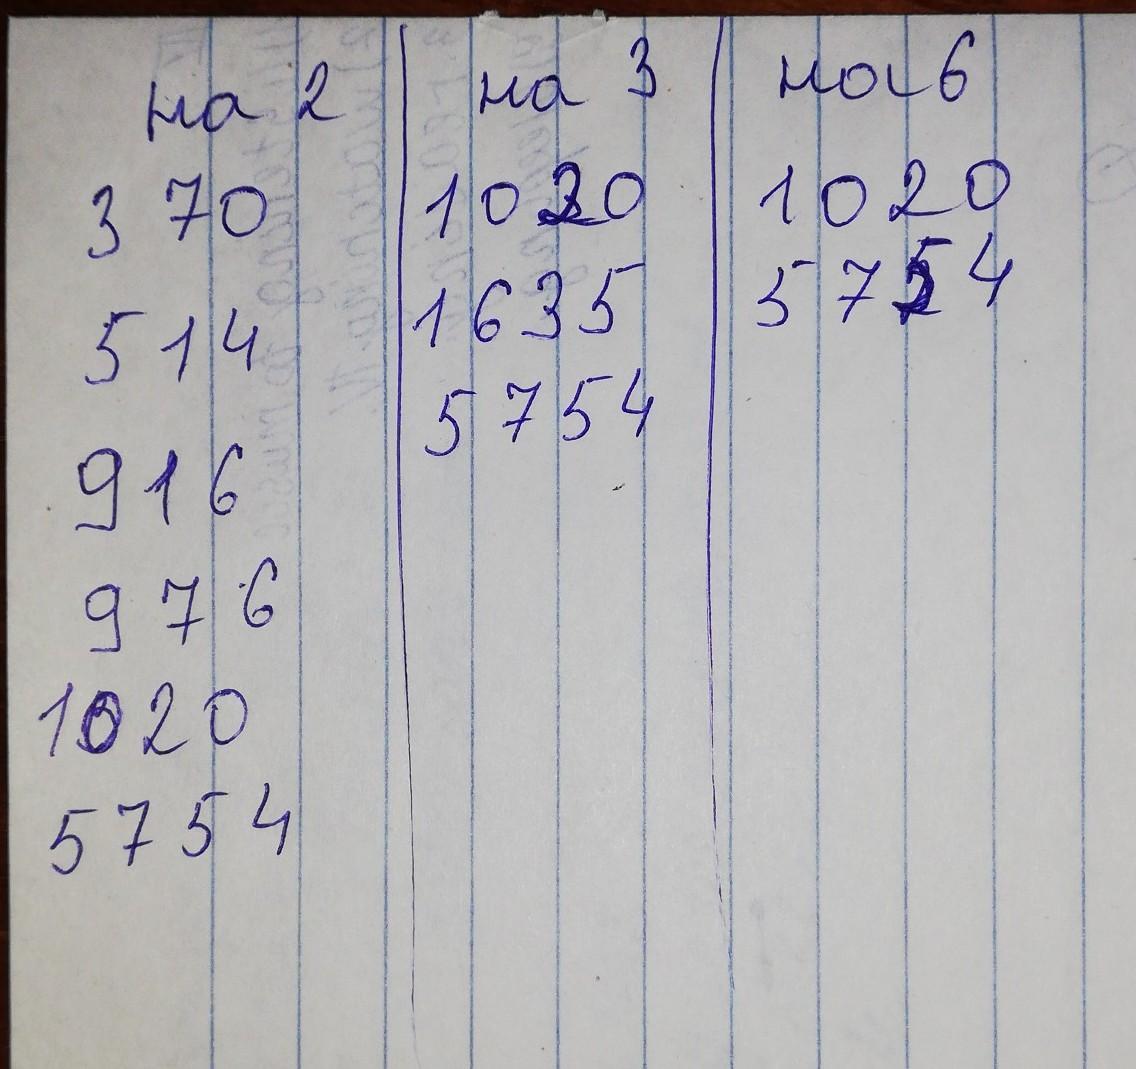 на 2
370
514
916
976
1020
5754
на 3
1020
1635
5754
на 6
1020
5754